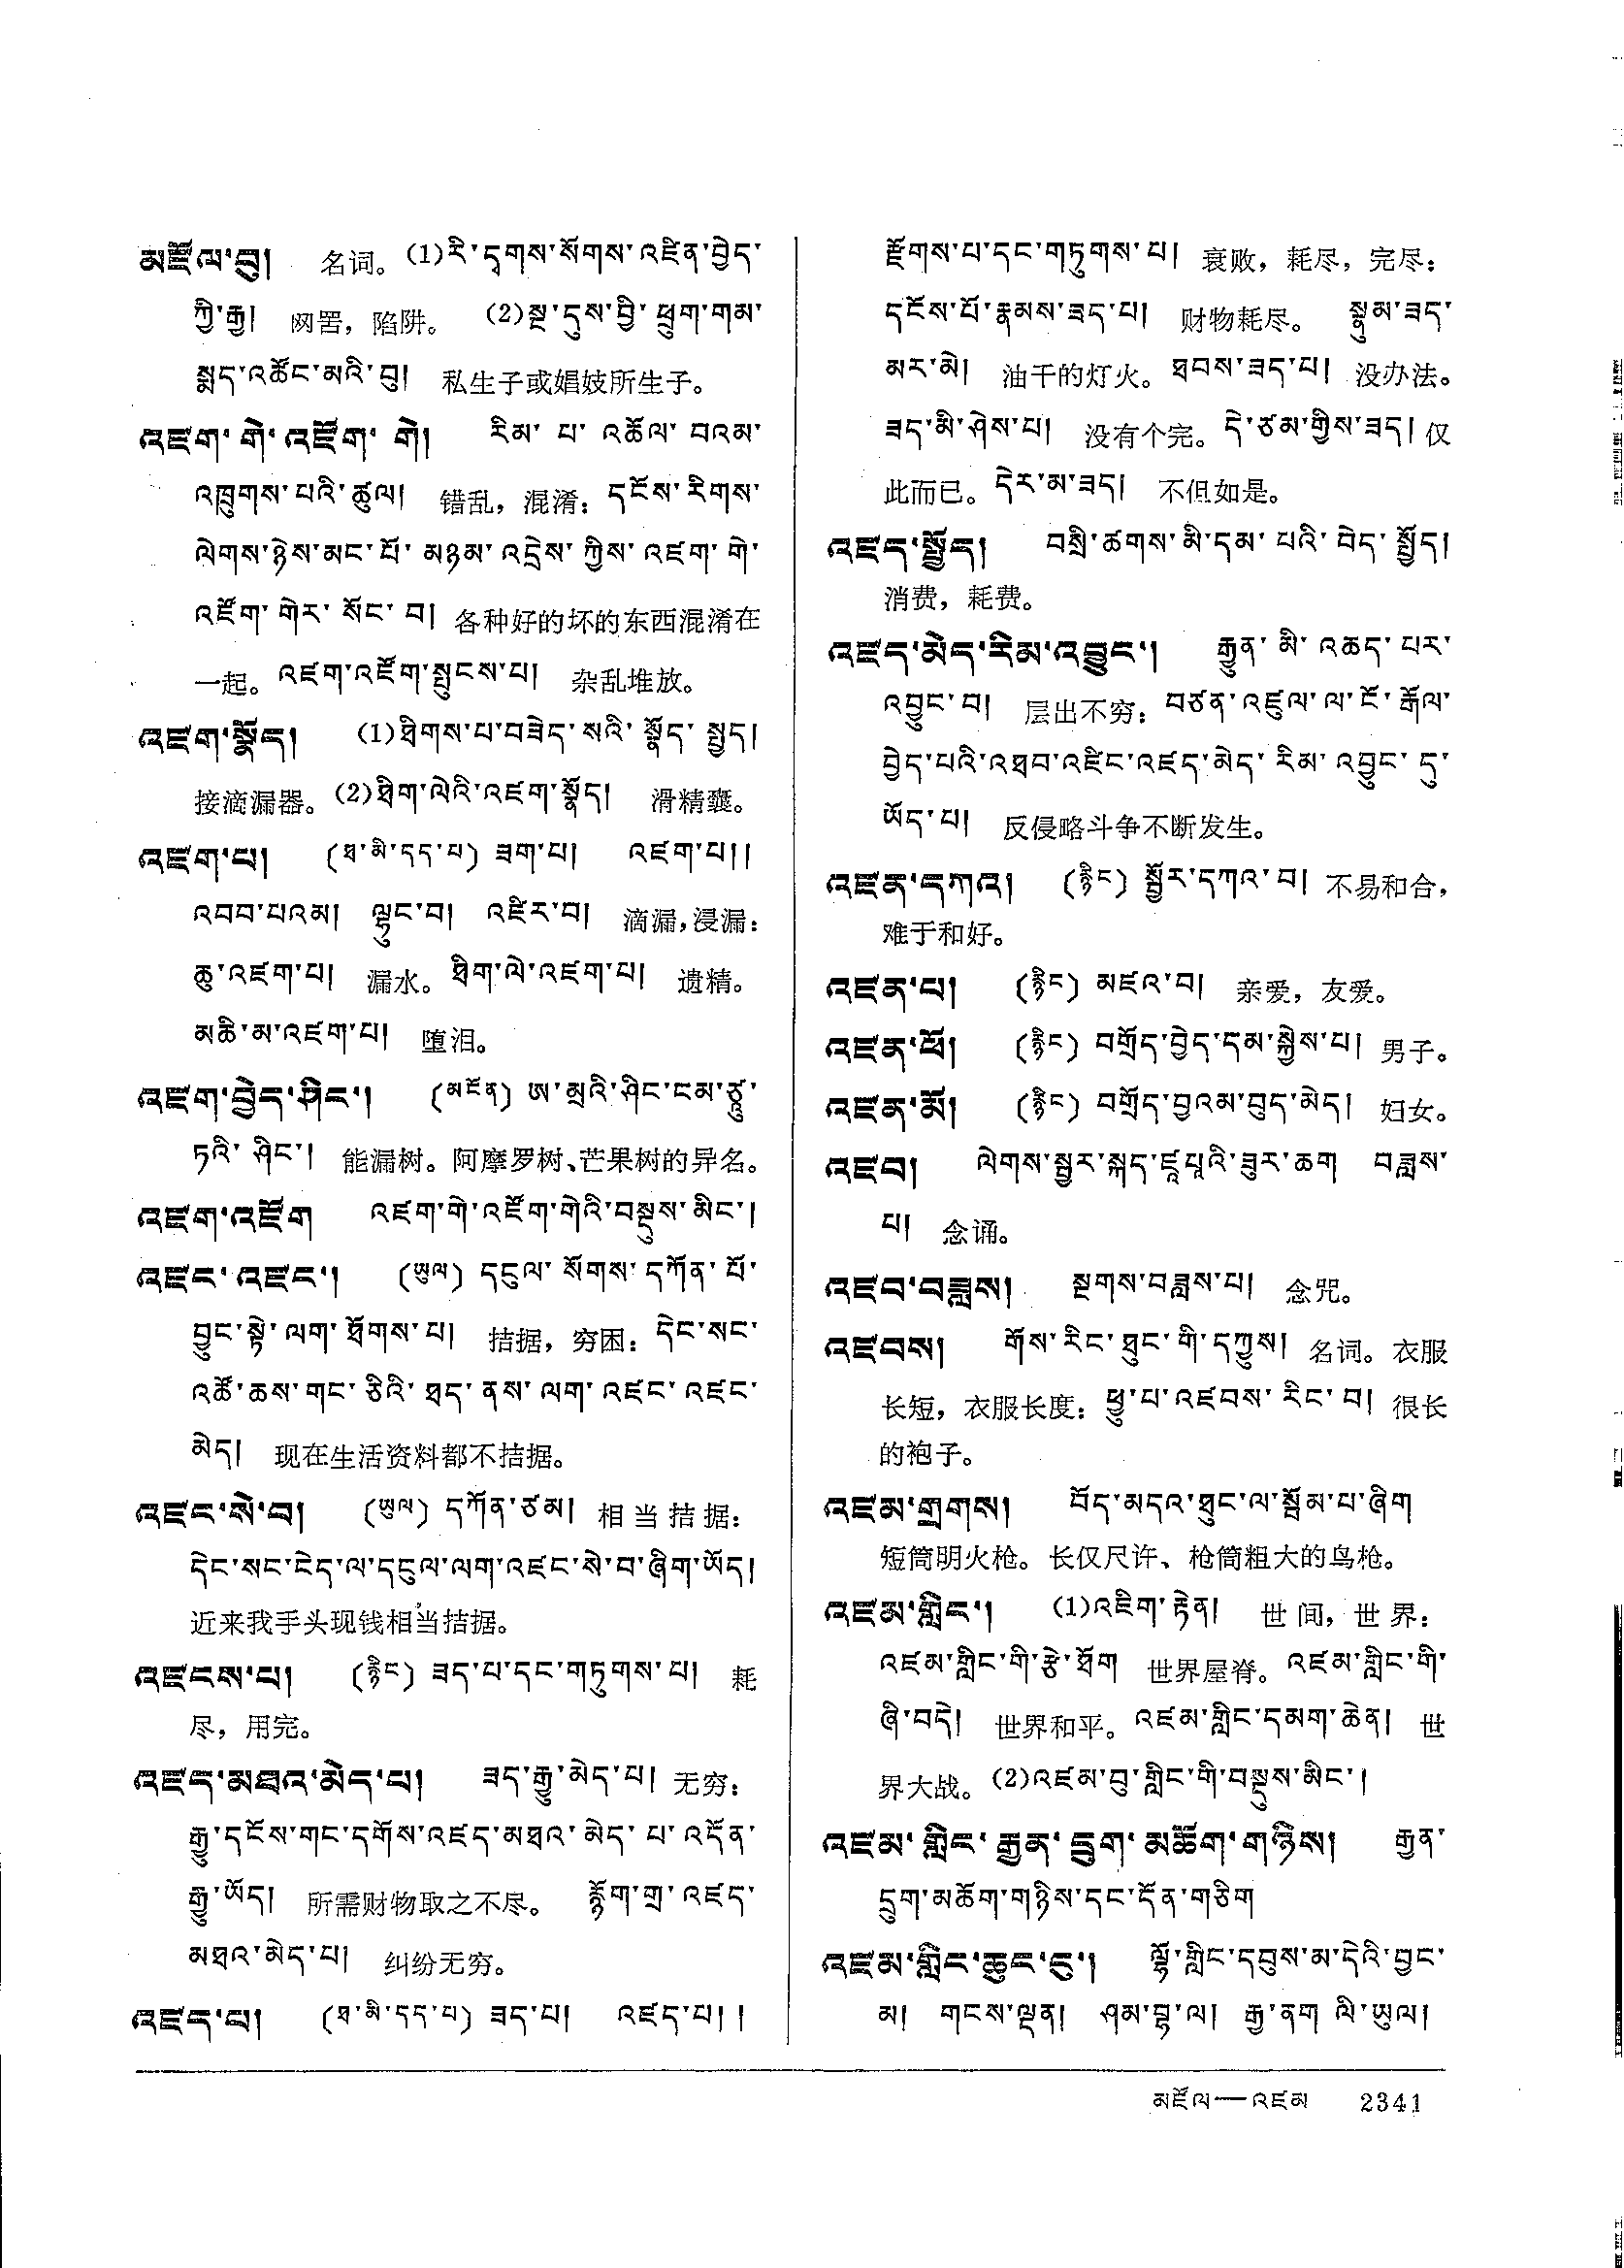 མཛོལ་བུ།  名词。(1)རི་དྭགས་སོགས་འཛིན་བྱེད་
ཀྱི་རྒྱ།  网罟，陷阱。 (2)སྔ་དུས་བྱི་ཕྲུག་གམ་
སྨད་འཚོང་མའི་བུ།  私生子或娼妓所生子。
འཛག་གེ་འཛོག་གེ།  རིམ་པ་འཚོལ་བའམ་
འཁྲུགས་པའི་ཚུལ།  错乱，混淆：དངོས་རིགས་
ལེགས་ཉེས་མང་པོ་མཉམ་འདྲེས་ཀྱིས་འཛག་གེ་
འཛོག་གེར་སོང་བ། 各种好的坏的东西混淆在
一起。འཛག་འཛོག་སྤུངས་པ།  杂乱堆放。
འཛག་སྣོད།  (1)ཐིགས་པ་བཟེད་སའི་སྣོད་སྤྱད།
接滴漏器。(2)ཐིག་ལེའི་འཛག་སྣོད།  滑精囊。
འཛག་པ།  (ཐ་མི་དད་པ) ཟག་པ།  འཛག་པ།།
འབབ་པའམ།  ལྷུང་བ།  འཛིར་བ།  滴漏,浸漏：
ཆུ་འཛག་པ།  漏水。ཐིག་ལེ་འཛག་པ།  遗精。
མཆི་མ་འཛག་པ།  堕泪。
འཛག་བྱེད་ཤིང་།  (མངོན) ཨ་མྲའི་ཤིང་ངམ་ཙཱུ་
ཏའི་ཤིང་།  能漏树。阿摩罗树、芒果树的异名。
འཛག་འཛོག  འཛག་གེ་འཛོག་གེའི་བསྡུས་མིང་།
འཛང་འཛང་།  (ཡུལ) དངུལ་སོགས་དཀོན་པོ་
བྱུང་སྟེ་ལག་ཐོགས་པ།  拮据，穷困：དེང་སང་
འཚོ་ཆས་གང་ཅིའི་ཐད་ནས་ལག་འཛང་འཛང་
མེད།  现在生活资料都不拮据。
འཛང་སེ་བ།  (ཡུལ) དཀོན་ཙམ།  相当拮据：
དེང་སང་ངེད་ལ་དངུལ་ལག་འཛང་སེ་བ་ཞིག་ཡོད།
近来我手头现钱相当拮据。
འཛངས་པ།  (རྙིང) ཟད་པ་དང་གཏུགས་པ།  耗
尽，用完。
འཛད་མཐའ་མེད་པ།  ཟད་རྒྱུ་མེད་པ། 无穷：
རྒྱུ་དངོས་གང་དགོས་འཛད་མཐའ་མེད་པ་འདོན་
རྒྱུ་ཡོད།  所需财物取之不尽。 རྙོག་གྲ་འཛད་
མཐའ་མེད་པ།  纠纷无穷。
འཛད་པ།  (ཐ་མི་དད་པ) ཟད་པ།  འཛད་པ།།
རྫོགས་པ་དང་གཏུགས་པ།  衰败，耗尽，完尽：
དངོས་པོ་རྣམས་ཟད་པ།  财物耗尽。 སྣུམ་ཟད་
མར་མེ།  油干的灯火。ཐབས་ཟད་པ།  没办法。
ཟད་མི་ཤེས་པ།  没有个完。དེ་ཙམ་གྱིས་ཟད། 仅
此而已。དེར་མ་ཟད།  不但如是。
འཛད་སྤྱོད།  བསྲི་ཚགས་མི་དམ་པའི་བེད་སྤྱོད།
消费，耗费。
འཛད་མེད་རིམ་འབྱུང་།  རྒྱུན་མི་འཆད་པར་
འབྱུང་བ།  层出不穷：བཙན་འཛུལ་ལ་ངོ་རྒོལ་
བྱེད་པའི་འཐབ་འཛིང་འཛད་མེད་རིམ་འབྱུང་དུ་
ཡོད་པ།  反侵略斗争不断发生。
འཛན་དཀའ།  (རྙིང) སྦྱོར་དཀའ་བ། 不易和合，
难于和好。
འཛན་པ།  (རྙིང) མཛའ་བ།  亲爱，友爱。
འཛན་ཕོ།  (རྙིང) བགྲོད་བྱེད་དམ་སྐྱེས་པ།  男子。
འཛན་མོ།  (རྙིང) བགྲོད་བྱའམ་བུད་མེད།  妇女。
འཛབ།  ལེགས་སྦྱར་སྐད་ཛཱཔཱའི་ཟུར་ཆག  བཟླས་
པ།  念诵。
འཛབ་བཟླས།  སྔགས་བཟླས་པ།  念咒。
འཛབས།  གོས་རིང་ཐུང་གི་དཀྱུས།  名词。衣服
长短，衣服长度：ཕྱུ་པ་འཛབས་རིང་བ།  很长
的袍子。
འཛམ་གྲགས།  བོད་མདའ་ཐུང་ལ་སྦོམ་པ་ཞིག
短筒明火枪。长仅尺许、枪筒粗大的鸟枪。
འཛམ་གླིང་།  (1)འཇིག་རྟེན།  世间，世界：
འཛམ་གླིང་གི་རྩེ་ཐོག  世界屋脊。འཛམ་གླིང་གི་
ཞི་བདེ།  世界和平。འཛམ་གླིང་དམག་ཆེན།  世
界大战。(2)འཛམ་བུ་གླིང་གི་བསྡུས་མིང་།
འཛམ་གླིང་རྒྱན་དྲུག་མཆོག་གཉིས།  རྒྱན་
དྲུག་མཆོག་གཉིས་དང་དོན་གཅིག
འཛམ་གླིང་ཆུང་ངུ་།  ལྷོ་གླིང་དབུས་མ་དེའི་བྱང་
མ།  གངས་ལྡན།  ཤམ་བྷ་ལ།  རྒྱ་ནག ལི་ཡུལ།
མཛོལ—འཛམ  2341